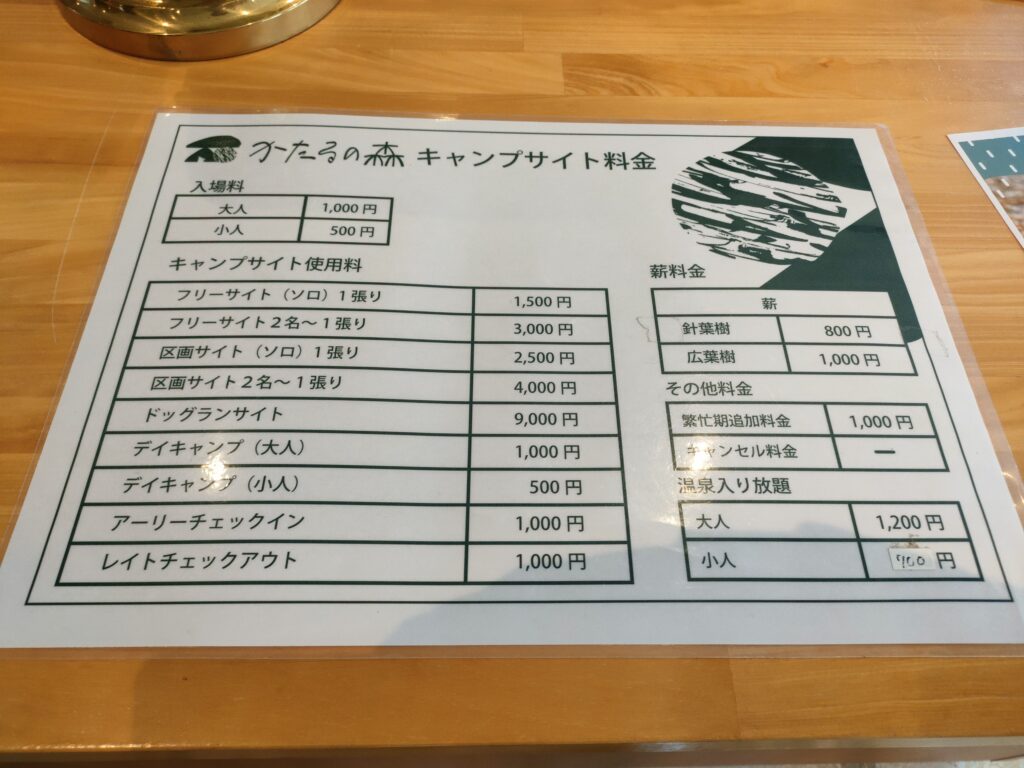 かたるの森 キャンプサイト料金
入場料
大人 1,000 円
小人 500 円
キャンプサイト使用料
フリーサイト（ソロ）1 張り 1,500 円
フリーサイト 2 名～ 1 張り 3,000 円
区画サイト（ソロ）1 張り 2,500 円
区画サイト 2 名～ 1 張り 4,000 円
ドッグランサイト 9,000 円
デイキャンプ（大人） 1,000 円
デイキャンプ（小人） 500 円
アーリーチェックイン 1,000 円
レイトチェックアウト 1,000 円
薪料金
薪
針葉樹 800 円
広葉樹 1,000 円
その他料金
繁忙期追加料金 1,000 円
キャンセル料金 ー
温泉入り放題
大人 1,200 円
小人 円